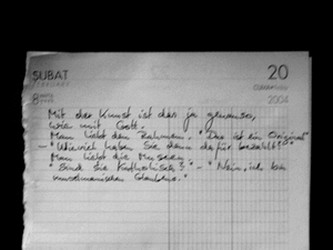 ŞUBAT 20
FEBRUARY
8 2004
Mit der Kunst ist das ja genauso,
wie mit Gott.
Man liebt den Rahmen. "Das ist ein Original"
- "Wieviel haben Sie denn dafür bezahlt?"
Man liebt die Museen.
"Sind Sie Katholisch?" - "Nein, ich bin
muselmanischen Glaubens."